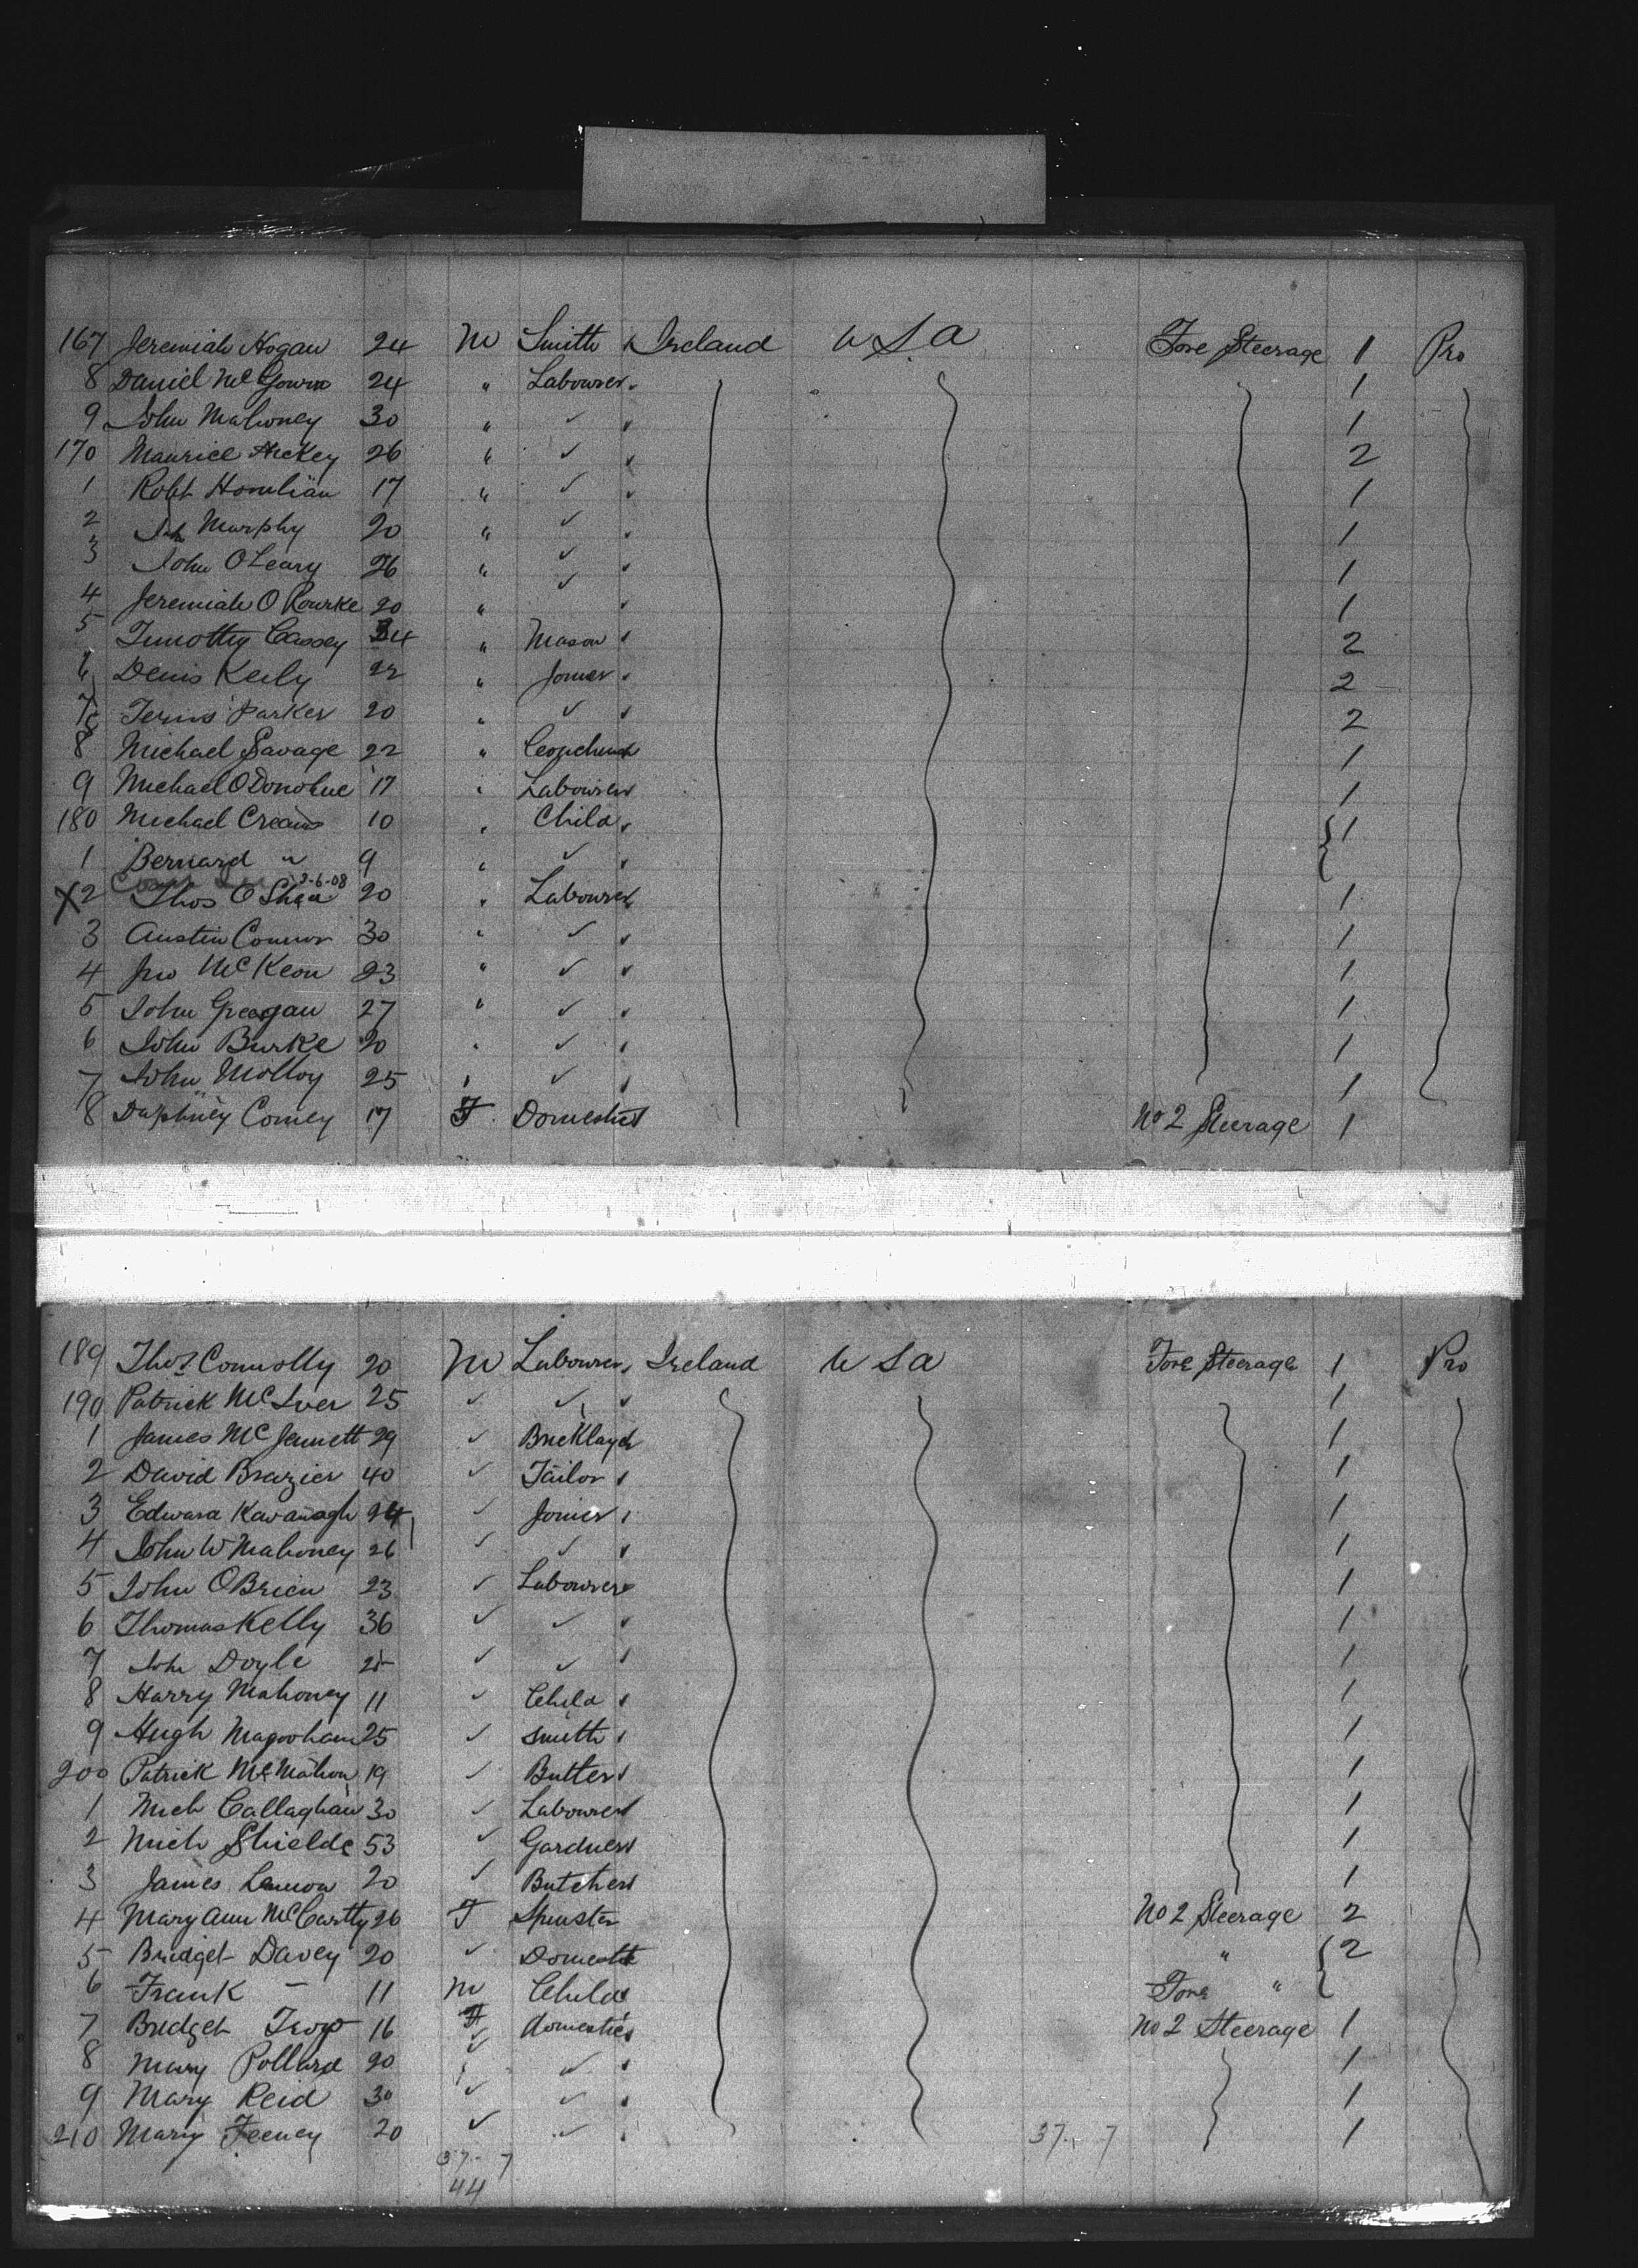 167 Jeremiah Hogan 24 M Smith Ireland U S A Fore Steerage 1 Pro
8 Daniel McGowan 24 " Labourer 1
9 John Mahoney 30 " ✓ 1
170 Maurice Hickey 26 " ✓ 2
1 Robt 17 " ✓ 1
2 Murphy 20 " ✓ 1
3 John O'Leary 26 " ✓ 1
4 Jeremiah O Rourke 20 " ✓ 1
5 Timothy Cassey 34 " Mason 2
6 Denis Keily 22 " Joiner 2
7 Parker 20 " ✓ 2
8 Michael Savage 22 " 1
9 Michael O'Donohue 17 " Labourer 1
180 Michael Creans 10 " Child 1
1 Bernard " 9 " ✓
3-6-08
X2 Thos O'Shea 20 " Labourer 1
3 Austin Connor 30 " ✓ 1
4 Jno McKeon 23 " ✓ 1
5 John 27 " ✓ 1
6 John Burke 20 " ✓ 1
7 John Molloy 25 " ✓ 1
8 Daphney Comey 17 F Domestic No 2 Steerage 1
189 Thos Connolly 20 M Labourer Ireland U S A Fore Steerage 1 Pro
190 Patrick McIver 25 ✓ ✓ 1
1 James McJennett 29 ✓ Bricklayer 1
2 David Brazier 40 ✓ Tailor 1
3 Edward Kavanagh 24 ✓ Joiner 1
4 John W Mahoney 26 ✓ ✓ 1
5 John OBrien 23 ✓ Labourer 1
6 Thomas Kelly 36 ✓ ✓ 1
7 John Doyle 25 ✓ ✓ 1
8 Harry Mahoney 11 ✓ Child 1
9 Hugh Magooham 25 ✓ Smith 1
200 Patrick McMahon 19 ✓ Butler 1
1 Mich Callaghan 30 ✓ Labourer 1
2 Mich Shields 53 ✓ Gardner 1
3 James Lennon 20 ✓ Butcher 1
4 Mary Ann McCartty 26 F Spinster No 2 Steerage 2
5 Bridget Davey 20 ✓ Domestic " 2
6 Frank – 11 M Child Fore "
7 Bridget 16 F domestic No 2 Steerage 1
8 Mary Pollard 20 ✓ ✓ 1
9 Mary Reid 30 ✓ ✓ 1
210 Mary Feeney 20 ✓ ✓ 1
37 - 7 37 - 7
44